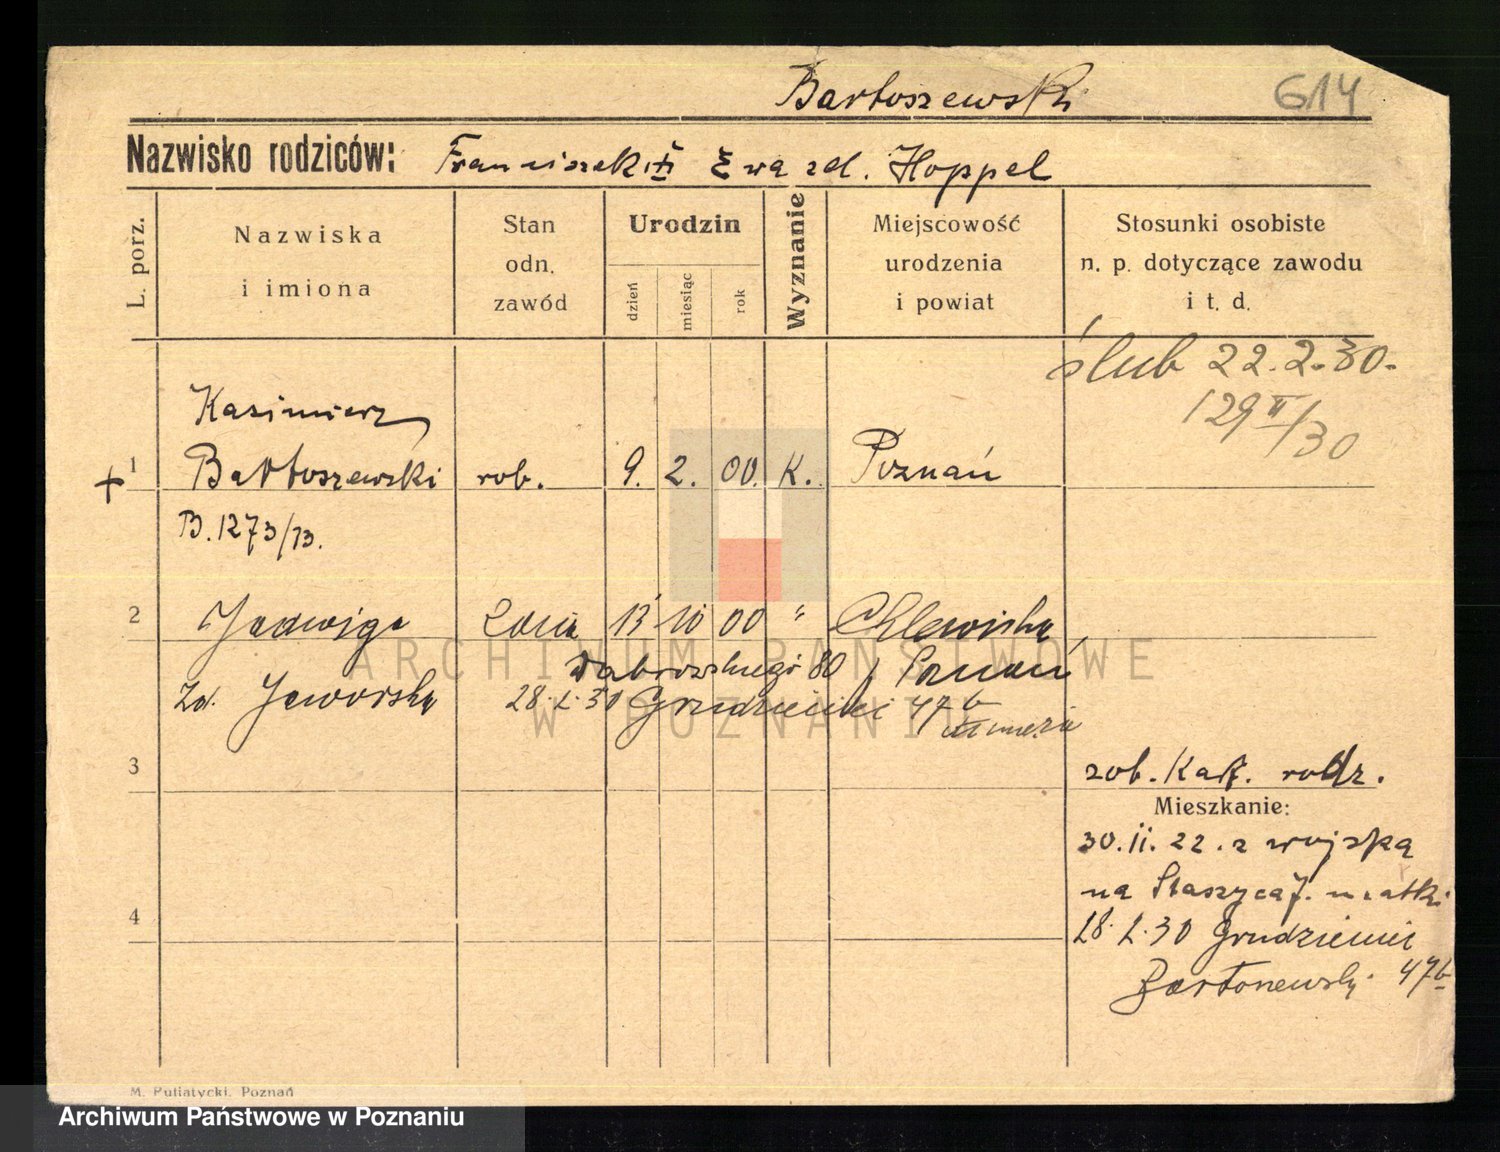 Bartoszewski 614
Nazwisko rodziców: Franciszek i Ewa zd. Hoppel
L. porz.
Nazwiska
i imiona
Stan
odn.
zawód
Urodzin
dzień
miesiąc
rok
Wyznanie
Miejscowość
urodzenia
i powiat
Stosunki osobiste
n. p. dotyczące zawodu
i t. d.
ślub 22.2.30.
129 II/30
Kazimierz
+ 1 Bartoszewski rob. 9. 2. 00. K. Poznań
B. 1273/13.
2 Jadwiga 13 10 00 "
ARCHIWUM PAŃSTWOWE
Dąbrowskiego 80 Poznań
zd. Jaworska 28.2.30 Grudzieniec 47b
W POZNANIU
3 zob. Kart. rodz.
Mieszkanie:
30.11.22. z wojska
na Staszyca 7. matki
28.2.30 Grudzieniec
47b
4
M. Putiatycki, Poznań
Archiwum Państwowe w Poznaniu